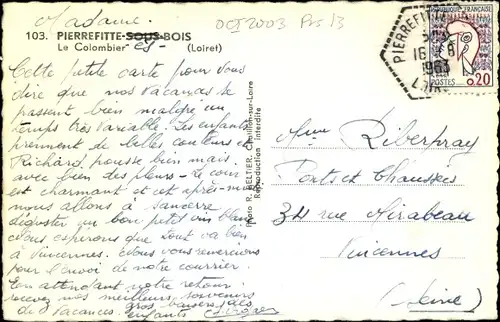 Madame.
OCT 2003 Prs 13
103. PIERREFITTE-SOUS-BOIS
ès
Le Colombier (Loiret)
Cette petite carte pour vous
dire que nos vacances se
passent bien malgré un
temps très variable. Les enfants
prennent de belles couleurs et
Richard, pousse bien mais
avec bien des pleurs. Le coin
est charmant et cet après-midi
nous allons à Sancerre
déguster un bon petit vin blanc
Nous espérons que tout va bien
à Vincennes. Nous vous remercions
pour l'envoi de notre courrier.
En attendant notre retour
recevez nos meilleurs souvenirs
de vacances. gros baisers des
enfants
Photo R. BELTIER, Châtillon-sur-Loire
Reproduction interdite
PIERREFITTE
16 - 8
1963
LOIRET
RÉPUBLIQUE FRANÇAISE
POSTES 0,20
Mme Riberpray
Ponts et Chaussées
34 rue Mirabeau
Vincennes
(Seine)